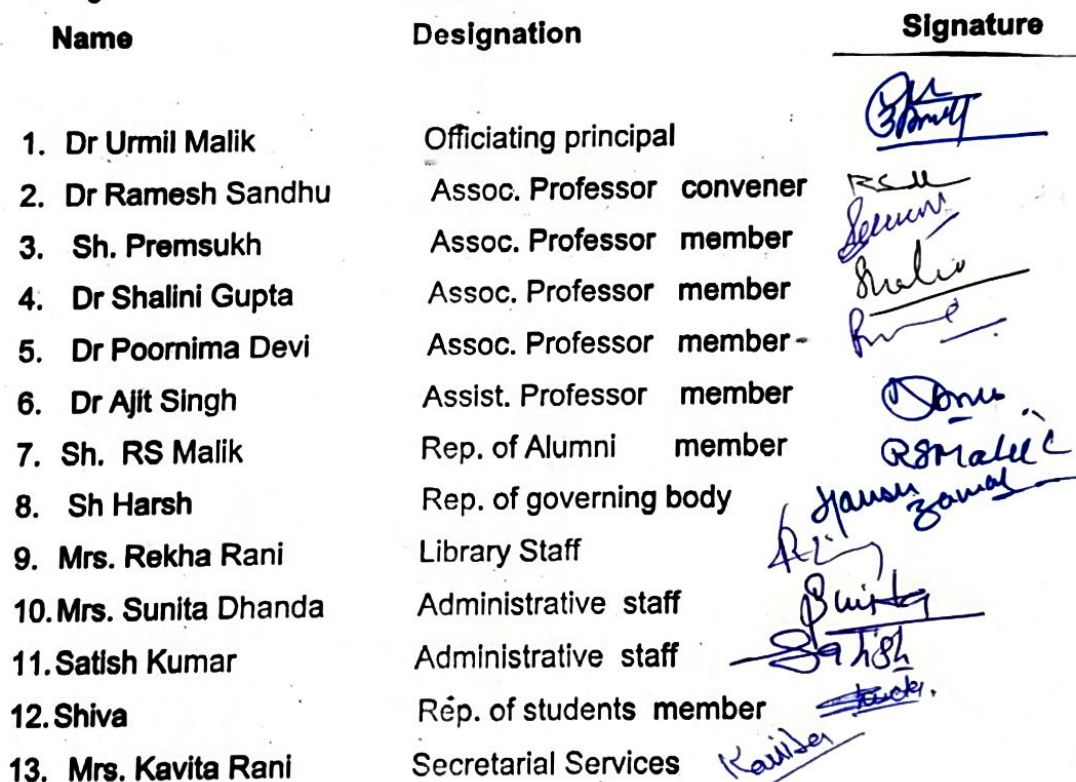 Name Designation Signature
1. Dr Urmil Malik Officiating principal
2. Dr Ramesh Sandhu Assoc. Professor convener
3. Sh. Premsukh Assoc. Professor member
4. Dr Shalini Gupta Assoc. Professor member
5. Dr Poornima Devi Assoc. Professor member-
6. Dr Ajit Singh Assist. Professor member
7. Sh. RS Malik Rep. of Alumni member RSMalik
8. Sh Harsh Rep. of governing body
9. Mrs. Rekha Rani Library Staff
10. Mrs. Sunita Dhanda Administrative staff
11. Satish Kumar Administrative staff Satish
12. Shiva Rep. of students member
13. Mrs. Kavita Rani Secretarial Services Kavita